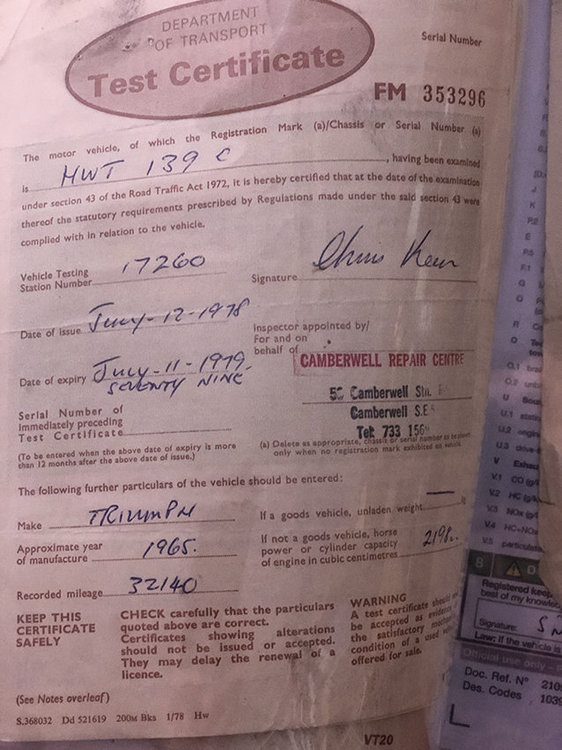 DEPARTMENT
OF TRANSPORT
Test Certificate
Serial Number
FM 353296
The motor vehicle, of which the Registration Mark (a)/Chassis or Serial Number (a)
is HWT 139 C, having been examined
under section 43 of the Road Traffic Act 1972, it is hereby certified that at the date of the examination
thereof the statutory requirements prescribed by Regulations made under the said section 43 were
complied with in relation to the vehicle.
Vehicle Testing
Station Number 17260
Signature
Date of issue July-12-1978
Inspector appointed by/
For and on
behalf of
CAMBERWELL REPAIR CENTRE
Camberwell Stn.
Camberwell S.E
Tel: 733 156
Date of expiry July-11-1979
SEVENTY NINE
Serial Number of
immediately preceding
Test Certificate
(To be entered when the above date of expiry is more
than 12 months after the above date of issue.)
(a) Delete as appropriate, chassis or serial number to be
only when no registration mark exhibited on vehicle.
The following further particulars of the vehicle should be entered:
Make TRIUMPH
If a goods vehicle, unladen weight — kg
Approximate year
of manufacture 1965.
If not a goods vehicle, horse
power or cylinder capacity
of engine in cubic centimetres
Recorded mileage 32140
KEEP THIS
CERTIFICATE
SAFELY
CHECK carefully that the particulars
quoted above are correct.
Certificates showing alterations
should not be issued or accepted.
They may delay the renewal of a
licence.
WARNING
A test certificate should
be accepted as evidence
the satisfactory
condition of a used
offered for sale.
(See Notes overleaf)
S.368032 Dd 521619 200M Bks 1/78 Hw
VT20
V.1 CO
V.2 HC
V.3 NOx
V.4 HC+NOx
V.5
Registered keeper
best of my knowledge
Signature:
Law: If the vehicle is
Official use only
Doc. Ref. Nº 210
Des. Codes 1039